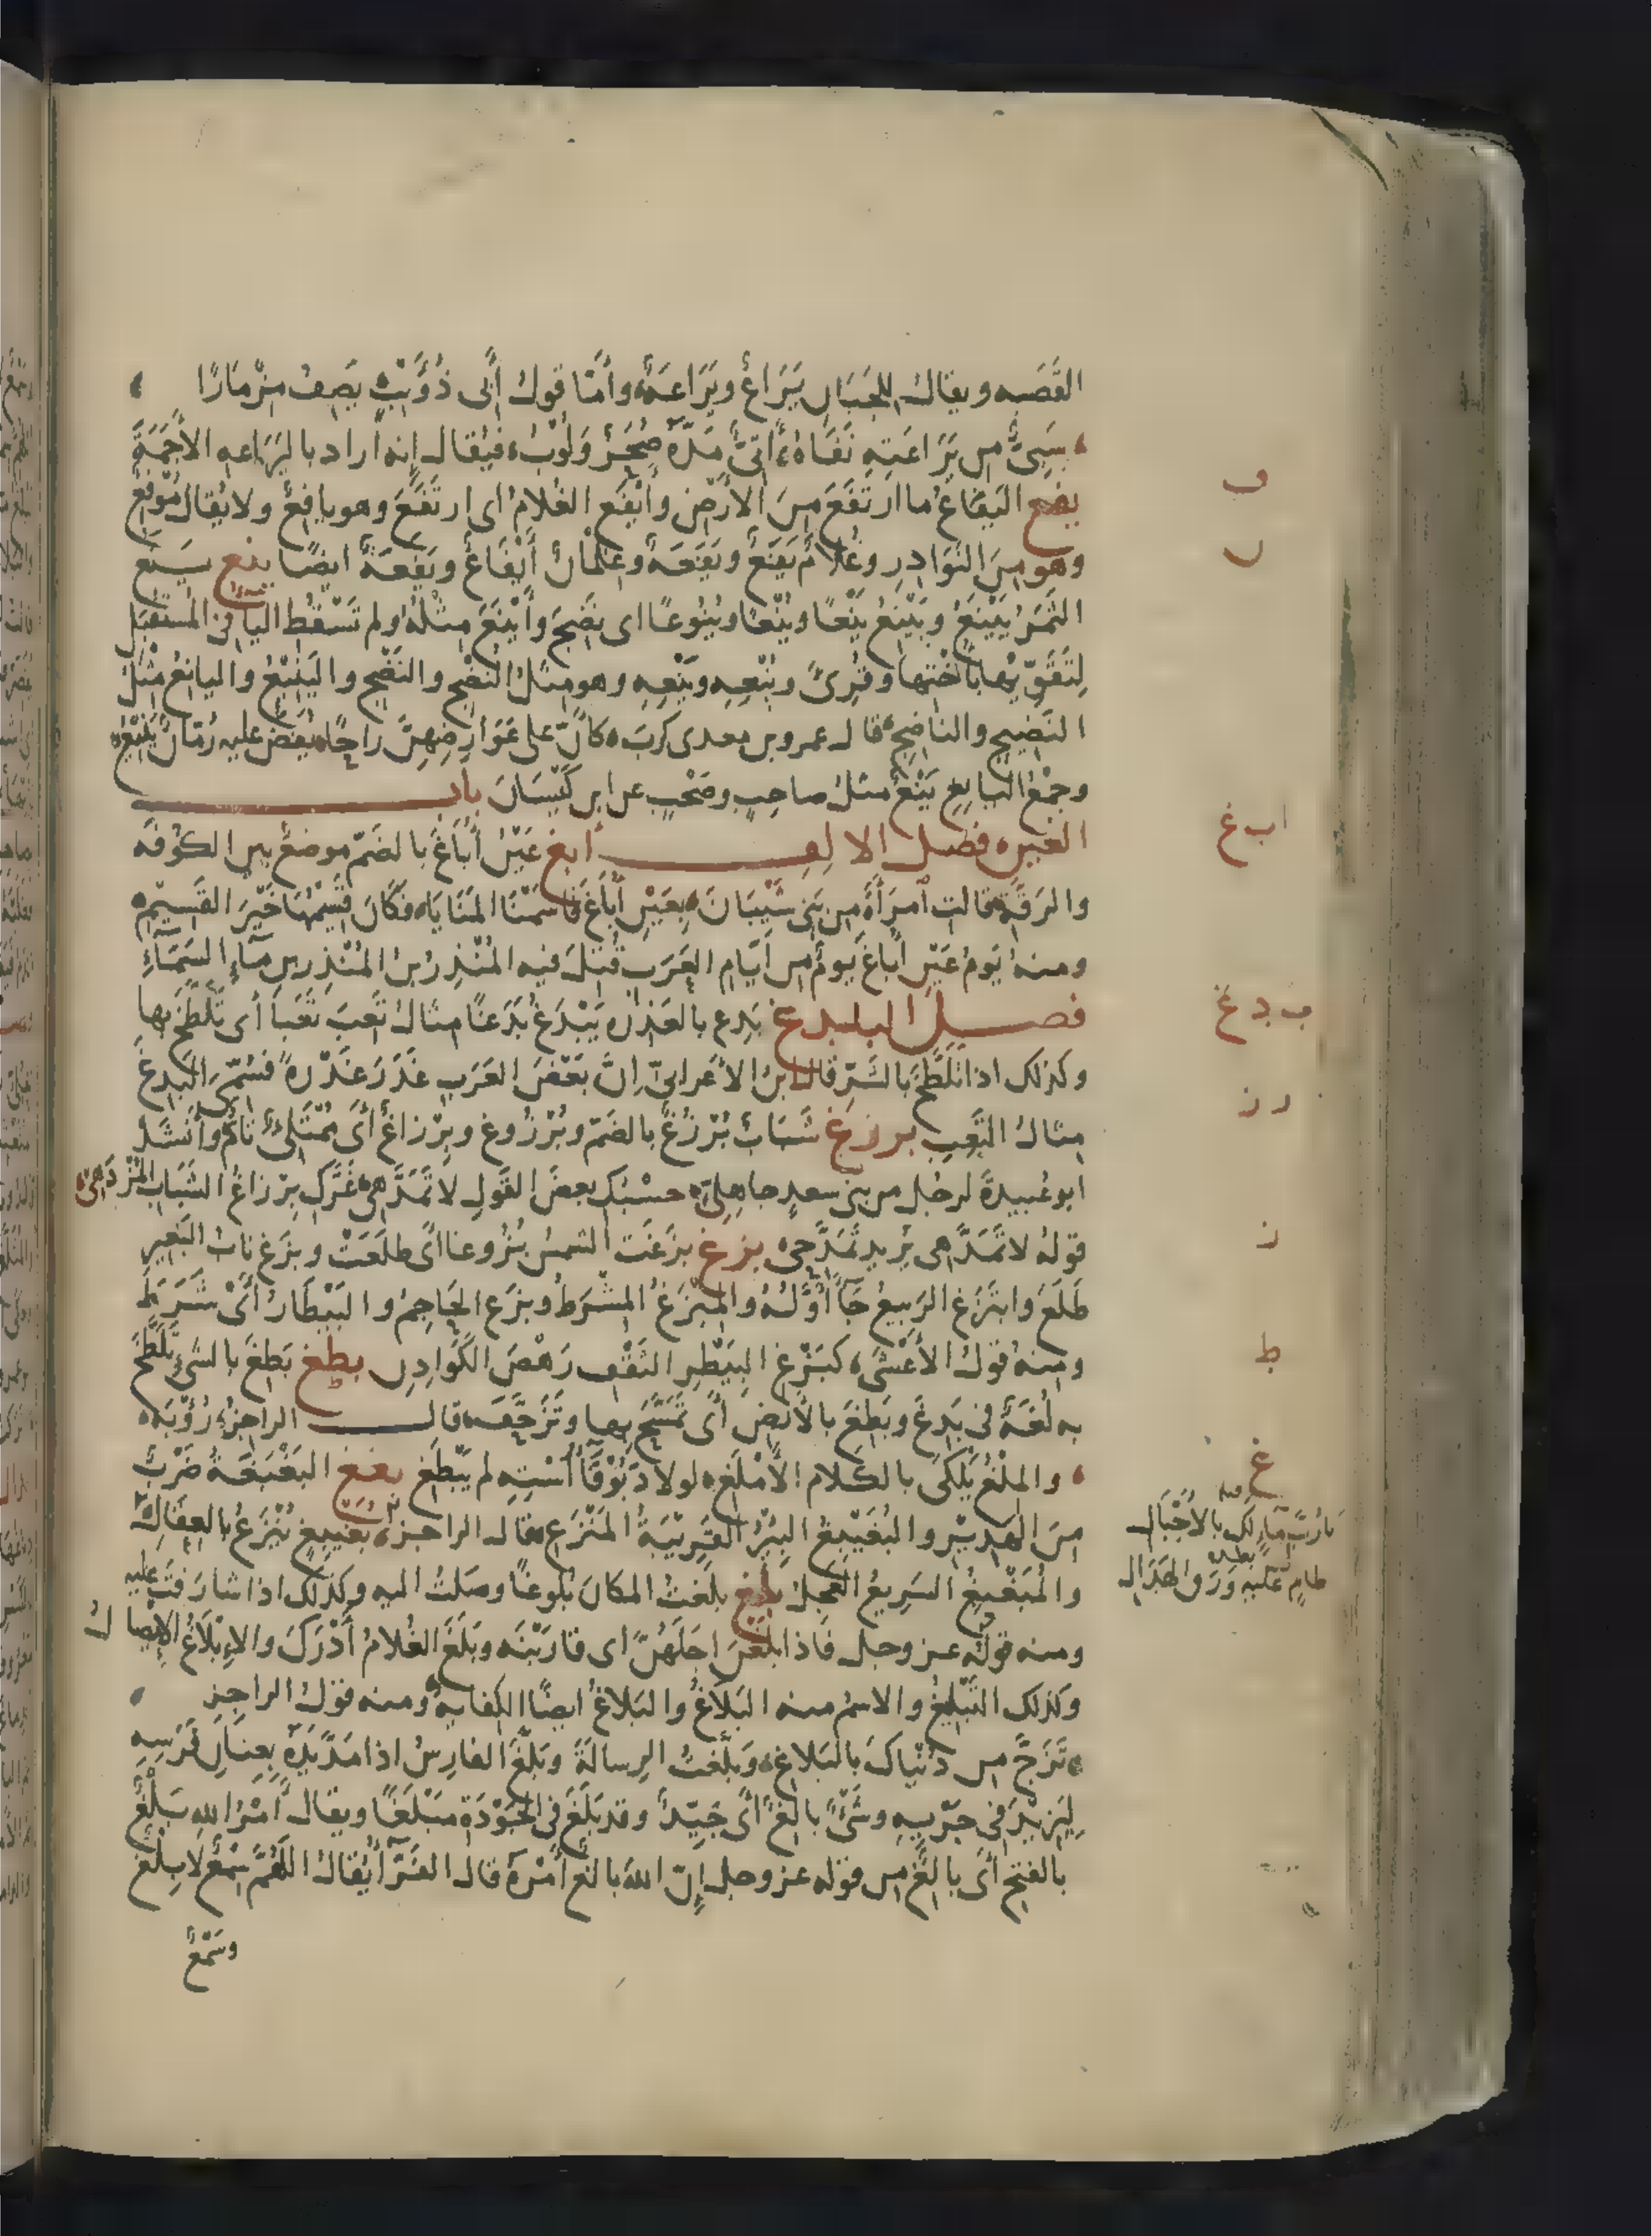 القَصَبه ويقال للجَبَان يَرَاعٌ ويَرَاعَةٌ وأمّا قول أبى ذُؤَيْبٍ يَصِفُ مِزْمَارًا
سَبِىٌّ من يَرَاعَتِهِ نَفَاهُ أَتِىٌّ مَدَّهُ صُحَرٌ وَلُوْبُ فيُقال إنه أراد باليَرَاعه الأَجَمَةَ
يفع اليَفَاعُ ما ارتَفَعَ مِنَ الأرْضِ وأَيْفَعَ الغُلامُ اى ارتَفَعَ وهو يافِعٌ ولا يُقال مُوْفِعٌ
وهو مِنَ النَوَادِرِ وغُلامٌ يَفَعٌ ويَفَعَةٌ وغلمانٌ أَيْفَاعٌ ويَفَعَةٌ ايضًا ينع يَنَعَ
الثَمَرُ يَيْنَعُ ويَيْنِعُ يَنْعًا ويُنْعًا ويُنُوعًا اى نَضِجَ وأَيْنَعَ مثلُهُ ولم تَسْقُط اليآ فى المستقبَل
لِتَقَوِّيْها بأُخْتِها وقُرِئَ ويُنْعِهِ ويَنْعِهِ وهو مثل النُضْج والنَضْج واليَنِيْعُ واليانِعُ مثل
النَضِيج والناضِج قال عمرو بن معدى كرب كانّ على عَوَارِضِهِنَّ راحًا يُفَضُّ عليه رُمّانٌ يَنِيْعُ
وجَمْعُ اليانِعِ يَنْعٌ مثل صاحِبٍ وصَحْبٍ عن ابن كَيْسَانَ باب
الغين فصل الالف أبغ عَيْنُ أُبَاغَ بالضَمّ موضعٌ بين الكُوْفَه
والرَقَّه قالت امرَأَةٌ من بَنى شَيْبَانَ بِعَيْنِ أُباغَ قاسَمْنَا المَنَايَا فكَانَ قَسِيْمُها خَيْرَ القَسِيْمِ
ومنهُ يَومُ عَيْنِ أُباغَ يومٌ من ايّامِ العَرَب قُتِلَ فيه المُنْذِرُ بن المُنْذِر بن مآءِ السَمَآءِ
فصل البآ بدغ بَدِغ بالعَذِرَه يَبْدَغُ بَدَغًا مثالُ تَعِبَ تَعَبًا أى تَلَطَّخَ بها
وكذلك اذا تلَطَّخَ بالشَرّ قال ابن الأعرابىّ إنَّ بَعْضَ العَرَبِ عَذَرَ عَذْرةً فسُمِّىَ البَدِغ
مثالُ التَعِبِ برزغ شَبَابٌ بُرْزُغٌ بالضَمّ وبُرْزُوغ وبِرْزاغٌ أى مُمْتَلِئٌ تامٌّ وأنشَدَ
ابو عُبيدةَ لرَجُلٍ من بنى سعدٍ جاهلىٍّ حسْبُك بعضُ القَولِ لا تَمَدَّهى غَرَّك بِرْزاغُ الشَبَابِ المُزْدَهِى
قولُه لا تَمَدَّهى يُريد تَمَدَّحِى بزغ بزَغَت الشمسُ بُزُوغًا أى طلَعَتْ وبزَغ نابُ البَعِير
طَلَعَ وابتَزَغ الرَبيعُ جَآ أَوَّلُهُ والمِبْزَغُ المِشْرَطُ وبزَغ الحاجِمُ والبَيْطَارُ أىْ شَرَطَ
ومنه قولُ الأَعْشَى كبَزْغِ البِيَطْرِ الثَقْف رَهْصَ الكَوَادِن بطغ بَطِغَ بالشئ تَلَطَّخ
به لُغَةٌ فى بَدِغَ وبَطِغَ بالأرض أى تَمَسَّحَ بها وتَزَحَّف قال الراجزُ رُؤْبَه
والمِلْغُ يَلْكَى بالكلام الأَمْلَغِ لولا دَبُوْقَآءُ اسْتِهِ لم يَبْطَغِ بغغ البَغْبَغَةُ ضَرْبٌ
مِنَ الهدير والبُغَيْبِغُ البِئرُ القَرِيْبَةُ المَنْزَع قال الراجز بُغَيْبِغٌ يُنْزَعُ بالعِقَالِ
والمُبَغْبِغُ السَرِيعُ العَجِلُ بلغ بلَغتُ المكانَ بُلوغًا وصَلتُ اليه وكذلك اذا شارَفتَ عليه
ومنه قولُه عز وجل فاذا بلَغْنَ اجَلَهُنَّ اى قارَبْنَه وبَلَغَ الغُلامُ أَدْرَكَ والإبْلاغُ الايصالُ
وكذلك التَبْلِيغُ والاسمُ منه البَلَاغُ والبَلاغُ ايضًا الكفايه ومنه قولُ الراجِز
تَزَجَّ من دُنْياك بالبَلاغِ وبَلَّغتُ الرِسالةَ وبَلَّغَ الفارِسُ اذا مَدَّ يَدَهُ بِعِنَانِ فَرَسِه
لِيَزِيْدَ فى جَرْيِه وشَىْءٌ بالِغٌ اى جَيِّدٌ وقد بَلَغَ فى الجَوْدَةِ مَبْلَغًا ويقال أَمْرُ الله بَلْغٌ
بالفتح أى بالِغٌ من قوله عز وجل إنّ اللهَ بالغ أَمْرَهُ قال الفَرّآءُ يُقال اللهُمَّ سَمْعٌ لا بَلْغٌ
وسَمْعٌ
ف
ا ب غ
ب د غ
ر ز
ز
ط
غ
يا رُبَّ مآءٍ لك بالأجْبَالِ
طامٍ عليه وَرَقُ الهَدَالِ